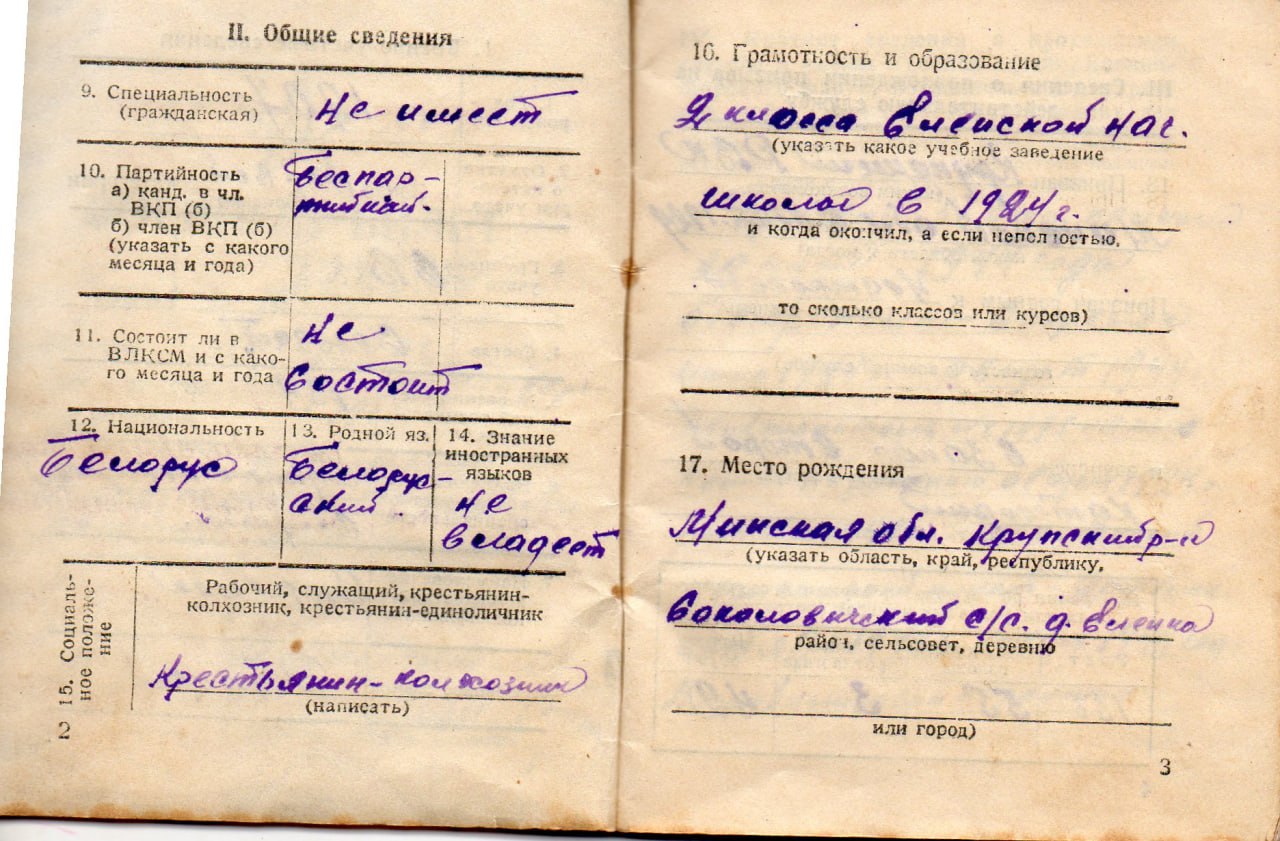 II. Общие сведения
9. Специальность
(гражданская)
не имеет
10. Партийность
а) канд. в чл.
ВКП (б)
б) член ВКП (б)
(указать с какого
месяца и года)
Беспар-
тийный.
11. Состоит ли в
ВЛКСМ и с како-
го месяца и года
не
состоит
12. Национальность
Белорус
13. Родной яз.
Белорус-
ский.
14. Знание
иностранных
языков
не
владеет
15. Социаль-
ное положе-
ние
Рабочий, служащий, крестьянин-
колхозник, крестьянин-единоличник
Крестьянин-колхозник
(написать)
2
16. Грамотность и образование
2 класса Еленской нач.
(указать какое учебное заведение
школы в 1924 г.
и когда окончил, а если неполностью,
то сколько классов или курсов)
17. Место рождения
Минская обл. Крупский р-н
(указать область, край, республику,
Соколовичский с/с. д.
район, сельсовет, деревню
или город)
3